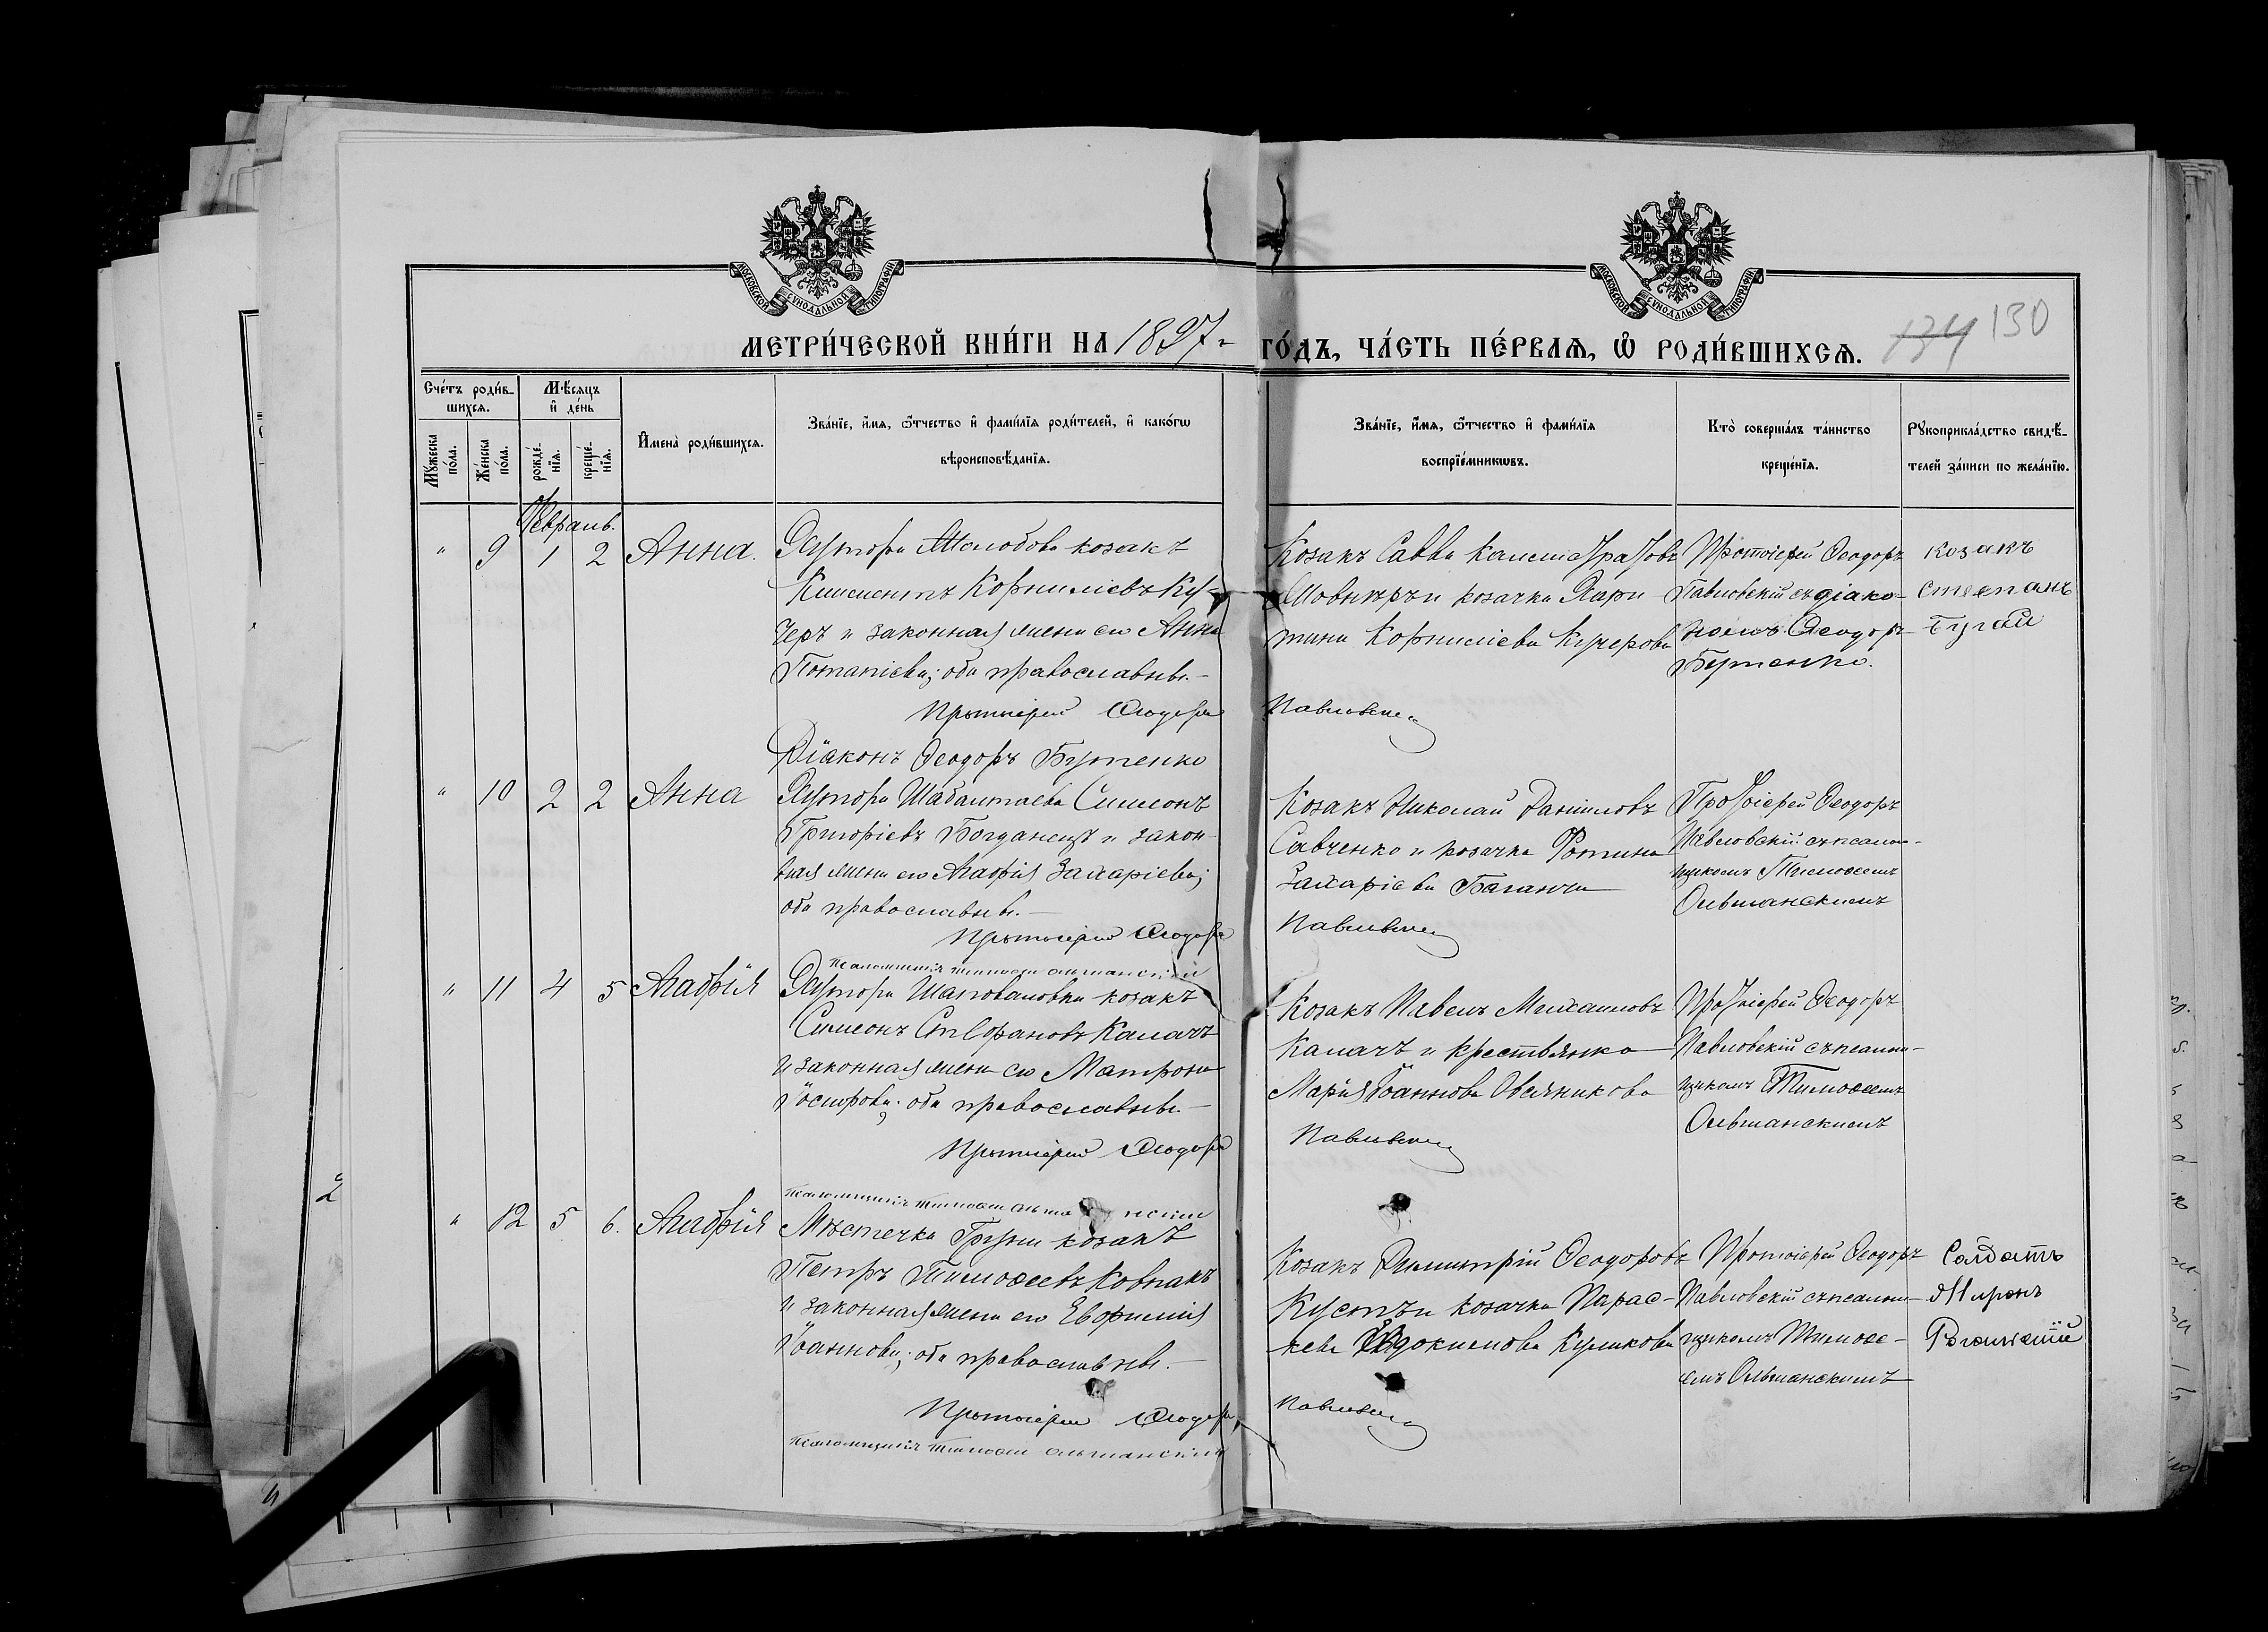 МОСКОВСКОЙ СУНОДАЛЬНОЙ ТИПОГРАФІИ
МОСКОВСКОЙ СУНОДАЛЬНОЙ ТИПОГРАФІИ
МЕТРИ́ЧЕСКОЙ КНИ́ГИ НА 1897-
ГО́ДЪ, ЧА́СТЬ ПЕ́РВАѦ, Ѽ РОДИ́ВШИХСѦ.
134 130
Сче́тъ роди́в-
шихсѧ.
Мѣ́сѧцъ
и҆ де́нь
Мꙋ́жеска
по́ла.
Же́нска
по́ла.
рожде́-
нїѧ.
креще́-
нїѧ.
И҆мена̀ роди́вшихсѧ.
Зва́нїе, и҆́мѧ, ѻ҆́тчество и҆ фами́лїѧ роди́телей, и҆ како́гѡ
вѣроисповѣ́данїѧ.
Зва́нїе, и҆́мѧ, ѻ҆́тчество и҆ фами́лїѧ
воспрїе́мникѡвъ.
Кто̀ соверша́лъ та́инство
креще́нїѧ.
Рꙋкоприкла́дство свидѣ́-
телей за́писи по жела́нїю.
Февраль.
" 9 1 2 Анна.
Хутора Молобова козакъ
Климентъ Корниліевъ Ку-
черъ и законная жена его Анна
Потапіева; оба православные.-
Протоіерей Ѳеодоръ
Діаконъ Ѳеодоръ Бутенко
Козакъ Савва Калистратовъ
Шовкѣръ и козачка Хари
тина Корниліева Кучерова
Павловскій
Протоіерей Ѳеодоръ
Павловскій съ діако-
номъ Ѳеодоръ
Бутенко.
козакъ
Степанъ
Бугай
" 10 2 2 Анна
Хутора Шабалтаева Симеонъ
Григоріевъ Богданецъ и закон-
ная жена его Агафія Захаріева;
оба православные.-
Протоіерей Ѳеодоръ
Псаломщикъ Тимоѳей Ольшанскій
Козакъ Николай Даніиловъ
Савченко и козачка Фотина
Захаріева
Павловскій
Протоіерей Ѳеодоръ
Павловскій съ псалом-
щикомъ Тимоѳеемъ
Ольшанскимъ
" 11 4 5 Агафія
Хутора Шаповаловки козакъ
Симеонъ Стефановъ Калачъ
и законная жена его Матрона
оба православные.-
Протоіерей Ѳеодоръ
Псаломщикъ Тимоѳей Ольшанскій
Козакъ Павелъ Михаиловъ
Калачъ и крестьянка
Марія Іоаннова Овсяникова
Павловскій
Протоіерей Ѳеодоръ
Павловскій съ псалом-
щикомъ Тимоѳеемъ
Ольшанскимъ
" 12 5 6. Агафія
Мѣстечка Груни козакъ
Петръ Тимоѳеевъ Ковпакъ
и законная жена его Евфимія
Іоаннова; оба православные.-
Протоіерей Ѳеодоръ
Псаломщикъ Тимоѳей Ольшанскій
Козакъ Димитрій Ѳеодоровъ
Кустъ и козачка Парас-
кева Евдокимова Куликова
Павловскій
Протоіерей Ѳеодоръ
Павловскій съ псалом-
щикомъ Тимоѳе-
емъ Ольшанскимъ
Солдатъ
Миронъ